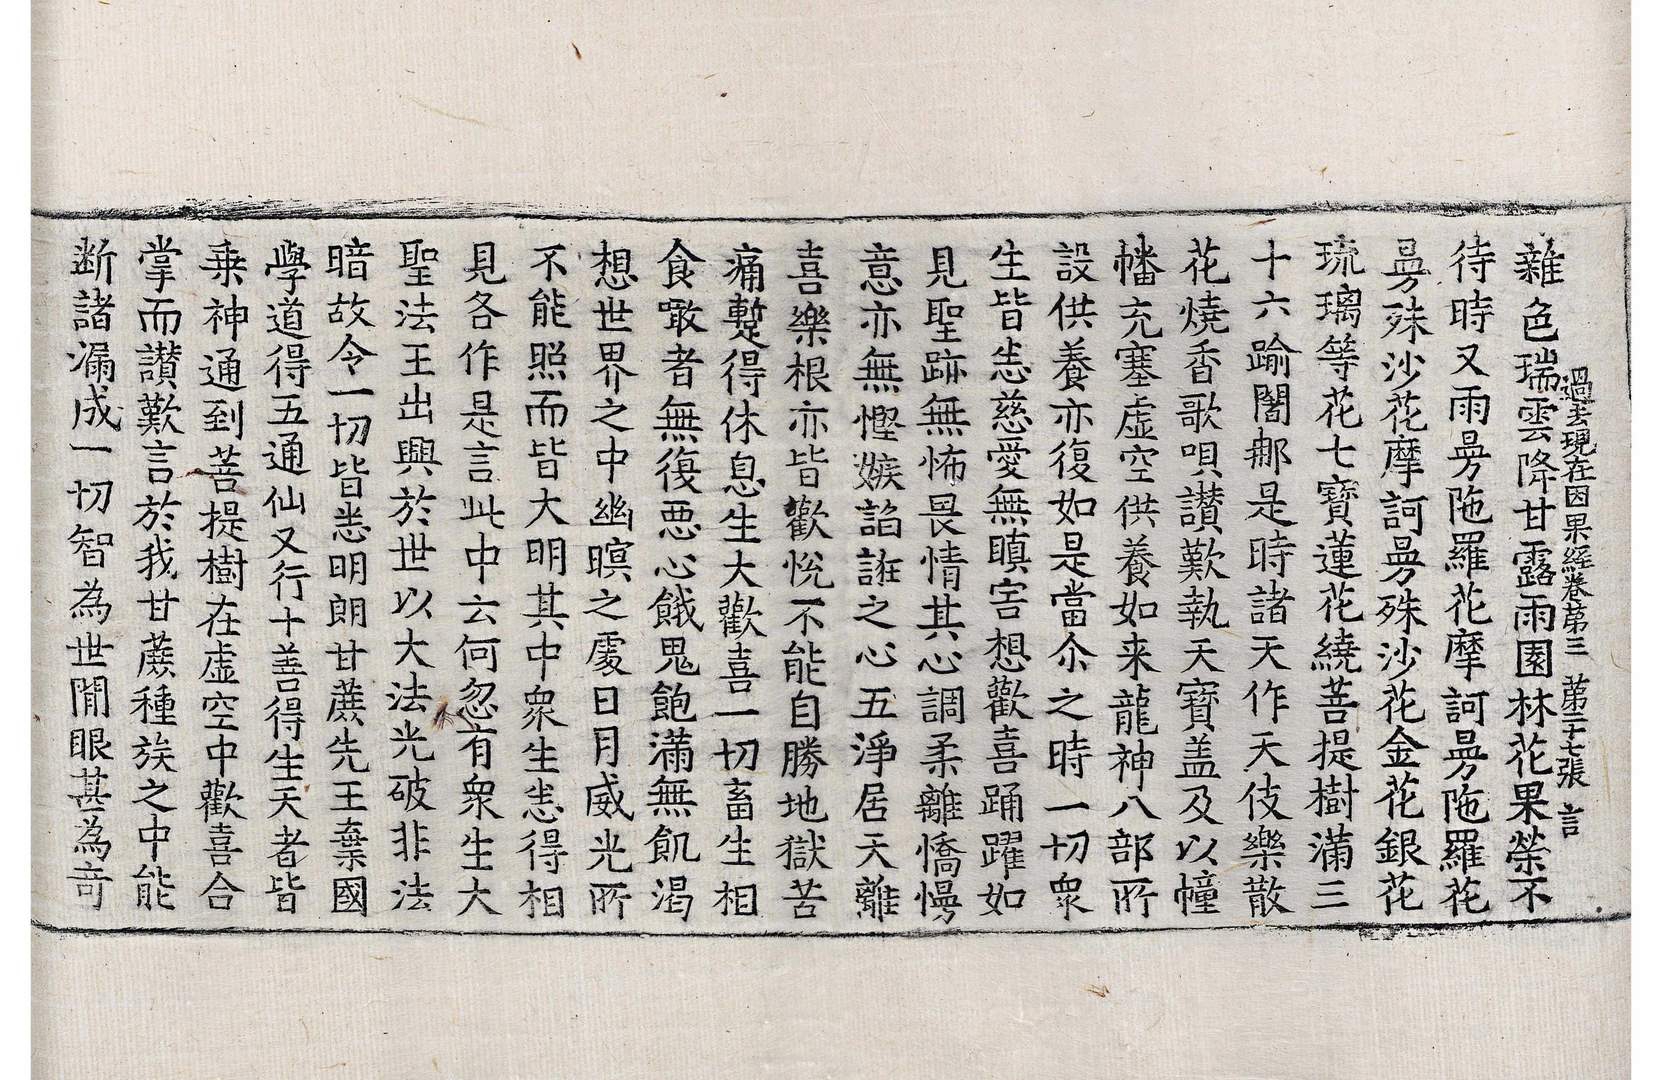 過去現在因果經卷第三 第二十七張 言
雜色瑞雲降甘露雨園林花果榮不
待時又雨曼陁羅花摩訶曼陁羅花
曼殊沙花摩訶曼殊沙花金花銀花
琉璃等花七寶蓮花繞菩提樹滿三
十六踰闍那是時諸天作天伎樂散
花燒香歌唄讃歎執天寶盖及以幢
幡充塞虛空供養如来龍神八部所
設供養亦復如是當尒之時一切衆
生皆悉慈愛無瞋害想歡喜踊躍如
見聖跡無怖畏情其心調柔離憍慢
意亦無慳嫉諂誑之心五淨居天離
喜樂根亦皆歡悅不能自勝地獄苦
痛蹔得休息生大歡喜一切畜生相
食噉者無復惡心餓鬼飽滿無飢渴
想世界之中幽暝之處日月威光所
不能照而皆大明其中衆生悉得相
見各作是言此中云何忽有衆生大
聖法王出興於世以大法光破非法
暗故令一切皆悉明朗甘蔗先王棄國
學道得五通仙又行十善得生天者皆
乗神通到菩提樹在虛空中歡喜合
掌而讃歎言於我甘蔗種族之中能
断諸漏成一切智為世間眼甚為奇